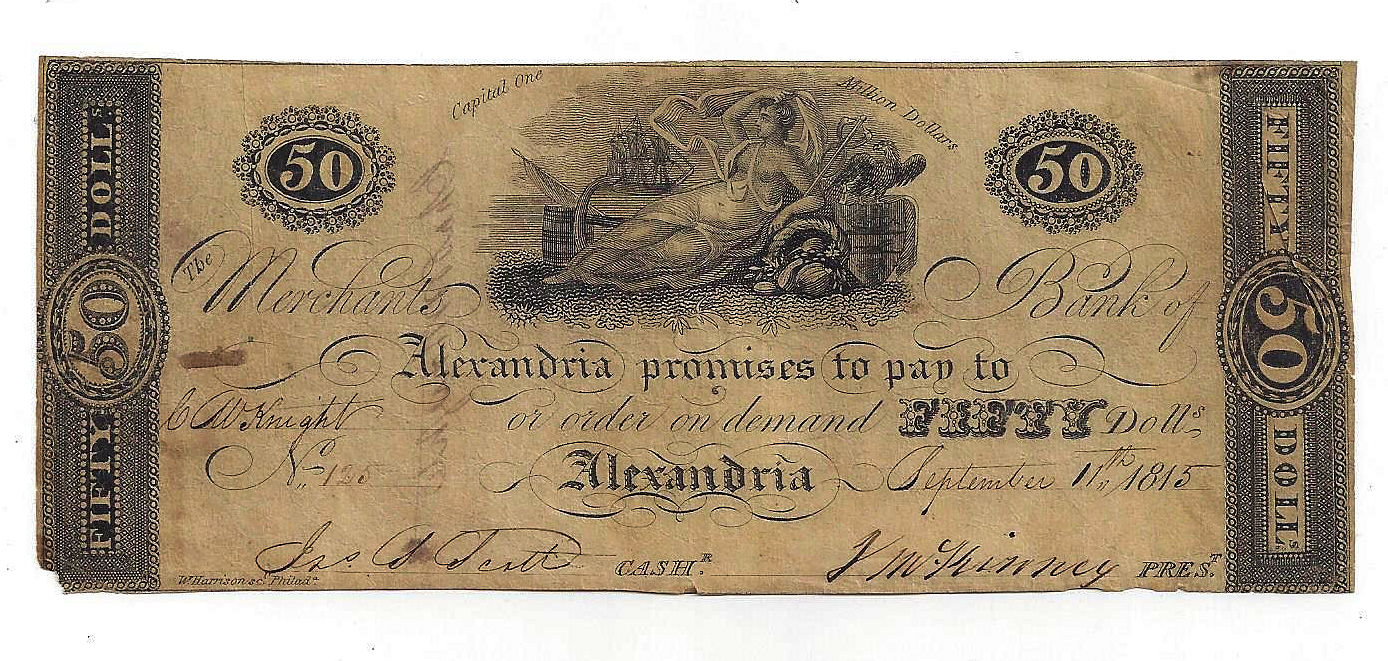 Capital One Million Dollars
50 50
FIFTY 50 DOLLS
The Merchants Bank of
Alexandria promises to pay to
C W Knight or order on demand FIFTY Dolls
No 125 Alexandria September 11th 1815
Jas. D Scott CASHR. J McKinney PREST.
W Harrison sc. Philada
FIFTY 50 DOLLS